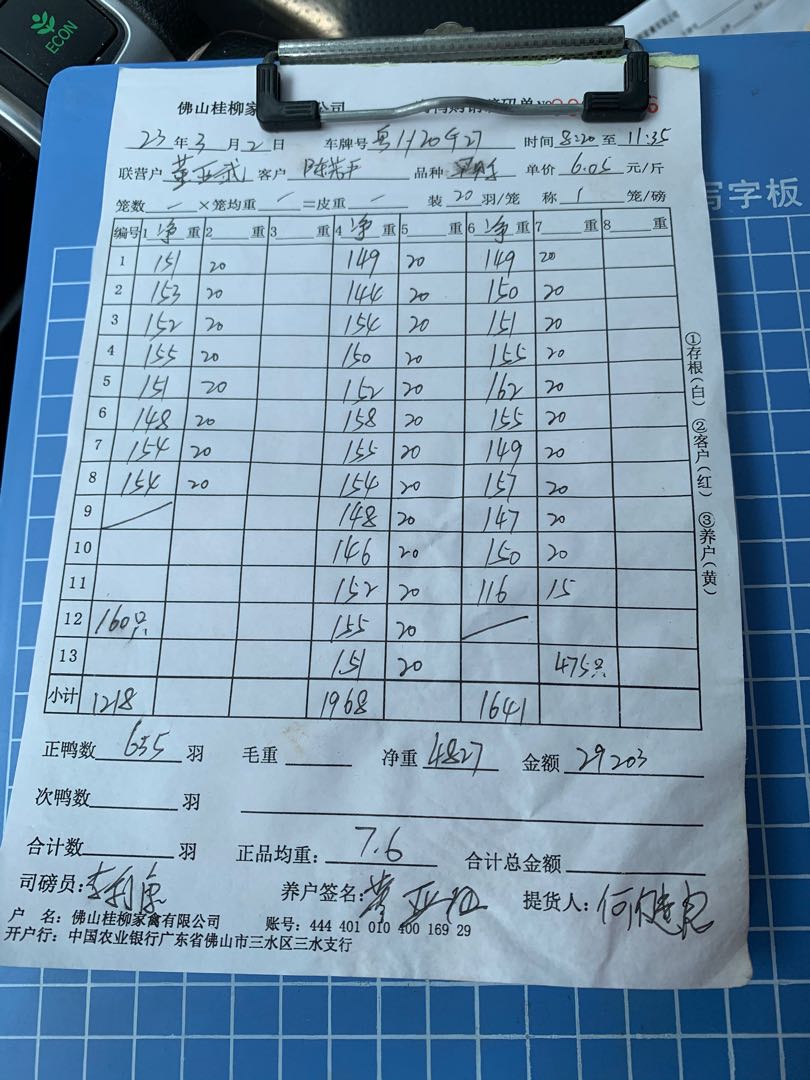 ECON
佛山桂柳家 公司
23年3月2日 车牌号 粤 时间8:20至11:35
联营户 客户 品种 单价6.05元/斤
笼数 — ×笼均重 — =皮重 — 装20羽/笼 称1笼/磅
写字板
编号 1净重 2 重 3 重 4净重 5 重 6净重 7 重 8 重
1 151 20 149 20 149 20
2 153 20 144 20 150 20
3 152 20 154 20 151 20
4 155 20 150 20 155 20
5 151 20 152 20 162 20
6 148 20 158 20 155 20
7 154 20 155 20 149 20
8 154 20 154 20 157 20
9 148 20 147 20
10 146 20 150 20
11 152 20 116 15
12 160只 155 20
13 151 20 475只
小计 1218 1968 1641
①存根(白) ②客户(红) ③养户(黄)
正鸭数 635 羽 毛重 净重 4827 金额 29203
次鸭数 羽
合计数 羽 正品均重: 7.6 合计总金额
司磅员: 养户签名: 提货人:
户 名: 佛山桂柳家禽有限公司 账号: 444 401 010 400 169 29
开户行: 中国农业银行广东省佛山市三水区三水支行